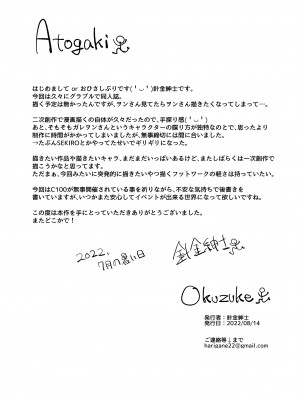 Atogaki
はじめまして or おひさしぶりです(╹◡╹)針金紳士です。
今回は久々にグラブルで同人誌。
描く予定は無かったんですが、サンさん見てたらサンさん描きたくなってしまって…。
二次創作で漫画描くの自体が久々だったので、手探り感(╹◡╹)
あと、そもそもガレヲンさんというキャラクターの喋り方が独特なので、思ったより
制作に時間がかかってしまいましたが、無事締切には間に合いました。
→たぶんSEKIROとかやってたせいでギリギリになった。
描きたい作品や描きたいキャラ、まだまだいっぱいあるけど、またしばらくは一次創作で
描こうかなと思ってます。
ただまぁ、今回みたいに突発的に描きたいやつ描くフットワークの軽さは持っていたい。
今回はC100が無事開催されている事を祈りながら、不安な気持ちで後書きを
書いていますが、いつかまた安心してイベントが出来る世界になって欲しいですね。
この度は本作を手にとっていただきありがとうございました。
またどこかで！
2022.
7月の暑い日
針金紳士
Okuzuke
発行者：針金紳士
発行日：2022/08/14
ご連絡等↓まで
harigane22@gmail.com